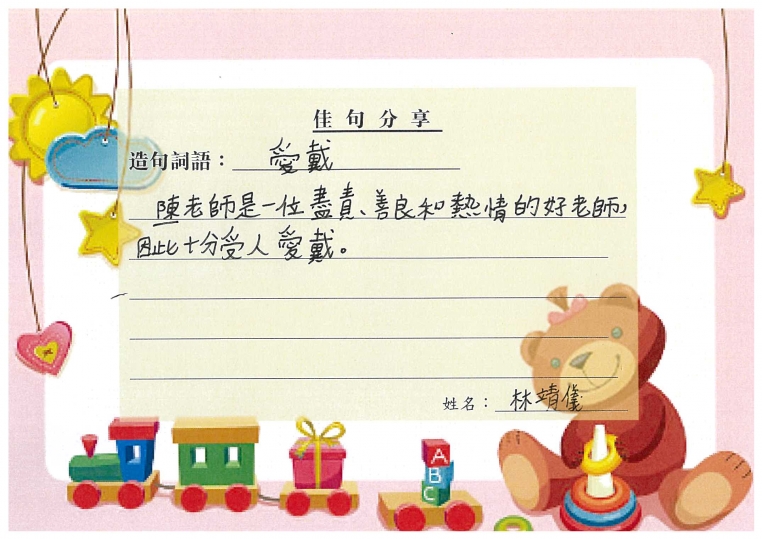 佳句分享
造句詞語：愛戴
陳老師是一位盡責、善良和熱情的好老師，
因此十分受人愛戴。
姓名：林靖儀
A
B
C